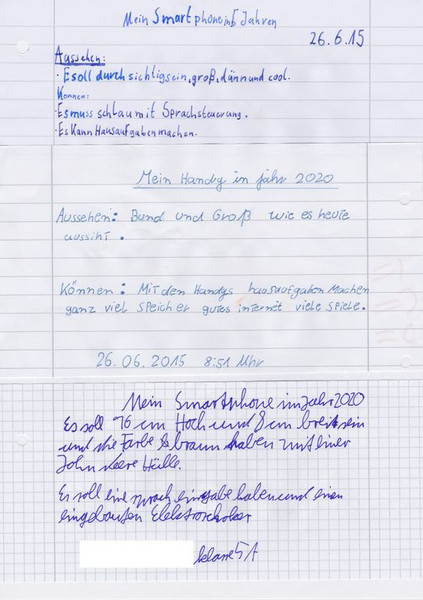 Mein Smartphone in 5 Jahren
26.6.15
Aussehen:
· Es soll durchsichtig sein, groß, dünn und cool.
Können:
· Es muss schlau mit Sprachsteuerung.
· Es kann Hausaufgaben machen.
Mein Handy in jahr 2020
Aussehen: Bund und Groß wie es heute
aussiht.
Können: Mit den Handys hausaufgaben Machen
ganz viel speicher gutes internet viele spiele.
26.06.2015 8:51 Uhr
Mein Smartphone im Jahr 2020
Es soll 16 cm Hoch und 8 cm breit sein
und die Farbe braun haben mit einer
John deere Hülle.
Es soll eine sprach eingabe haben und einen
eingebauten
klasse 5A